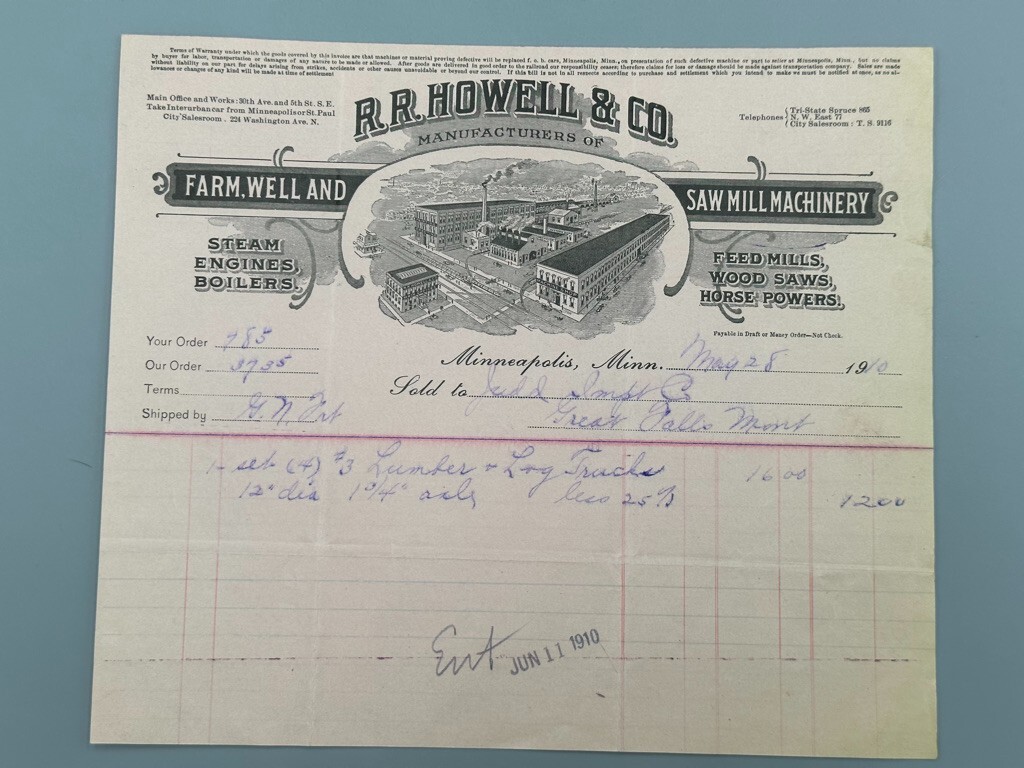 Terms of Warranty under which the goods covered by this invoice are that machines or material proving defective will be replaced f. o. b. cars, Minneapolis, Minn., on presentation of such defective machine or part to seller at Minneapolis, Minn., but no claims
by buyer for labor, transportation or damages of any nature to be made or allowed. After goods are delivered in good order to the railroad our responsibility ceases; therefore claims for loss or damage should be made against transportation company. Sales are made
without liability on our part for delays arising from strikes, accidents or other causes unavoidable or beyond our control. If this bill is not in all respects according to purchase and settlement which you intend to make we must be notified at once, as no al-
lowances or changes of any kind will be made at time of settlement
Main Office and Works: 30th Ave. and 5th St. S. E.
Take Interurban car from Minneapolis or St. Paul
City Salesroom . 224 Washington Ave. N.
R.R. HOWELL & CO.
Telephones
Tri-State Spruce 865
N. W. East 77
City Salesroom : T. S. 9116
MANUFACTURERS OF
FARM, WELL AND
SAW MILL MACHINERY
STEAM
ENGINES,
BOILERS.
FEED MILLS,
WOOD SAWS,
HORSE POWERS.
Payable in Draft or Money Order—Not Check.
Your Order 985
Our Order 3735
Terms
Shipped by G. N. Frt
Minneapolis, Minn. May 28 1910
Sold to Judd Impt Co
Great Falls Mont
1 set (4) #3 Lumber & Log Trucks 16 00
12" dia 1 3/4" axle less 25% 12 00
Ent JUN 11 1910